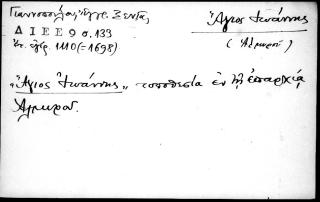 Γιαννοπούλου, Ἔγγρ. Ξενίας
Δ Ι Ε Ε 9 σ. 133
ἐν ἐγγρ. 1110 (=1698)
Ἅγιος Ἰωάννης
(Ἁλμυροῦ)
„Ἅγιος Ἰωάννης„ τοποθεσία ἐν τῇ ἐπαρχίᾳ
Ἁλμυροῦ.